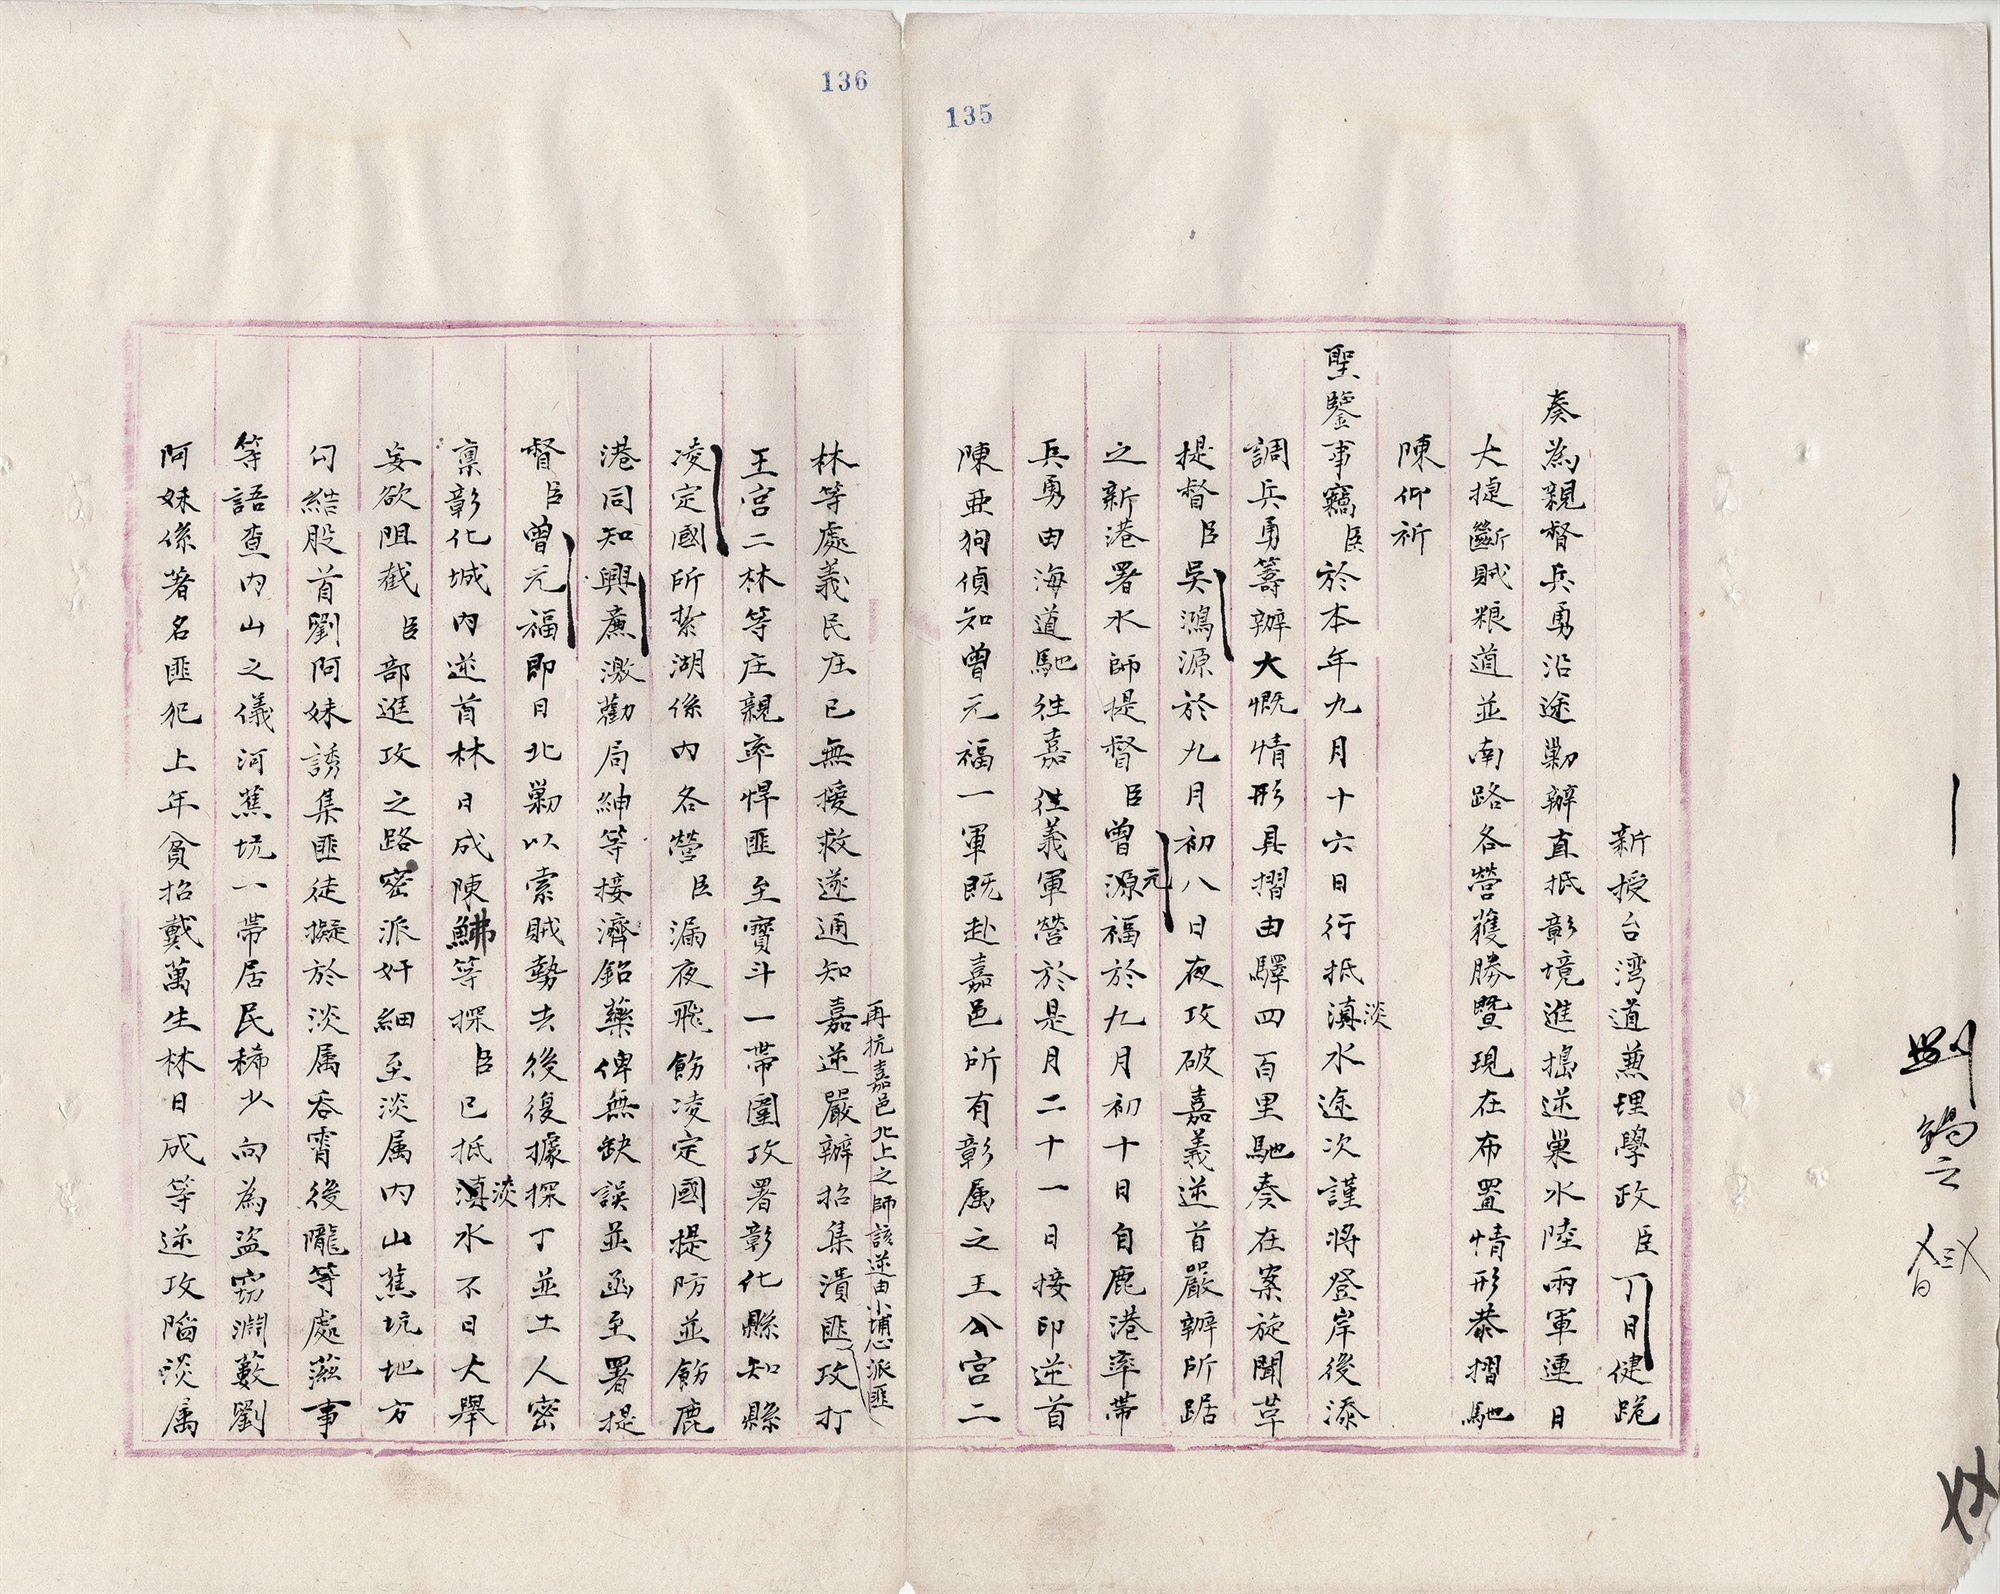 135
新授台灣道兼理學政臣丁日健跪
奏為親督兵勇沿途勦辦直抵彰境進搗逆巢水陸兩軍連日
大捷斷賊粮道並南路各營獲勝暨現在布置情形恭摺馳
陳仰祈
聖鑒事竊臣於本年九月十六日行抵滇淡水途次謹將登岸後添
調兵勇籌辦大慨情形具摺由驛四百里馳奏在案旋聞草
提督臣吳鴻源於九月初八日夜攻破嘉義逆首嚴辦所踞
之新港署水師提督臣曾源元福於九月初十日自鹿港率帶
兵勇由海道馳往嘉往義軍營於是月二十一日接印逆首
陳亜狗偵知曾元福一軍既赴嘉邑所有彰属之王公宮二
136
再抗嘉邑北上之師該逆由小埔心派匪
林等處義民庄已無援救遂通知嘉逆嚴辦招集潰匪攻打
王宮二林等庄親率悍匪至寶斗一帶圍攻署彰化縣知縣
凌定國所紮湖係內各營臣漏夜飛飭凌定國提防並飭鹿
港同知興廉激勸局紳等接濟鉛藥俾無缺誤並函至署提
督臣曾元福即日北勦以索賊勢去後復據探丁並土人密
禀彰化城內逆首林日成陳鯡等探臣已抵滇淡水不日大舉
妄欲阻截臣部進攻之路密派奸細至淡属內山蕉坑地方
勾結股首劉阿妹誘集匪徒擬於淡属吞霄後隴等處滋事
等語查內山之儀河蕉坑一帶居民稀少向為盜窃淵藪劉
阿妹係著名匪犯上年貧招戴萬生林日成等逆攻陷淡属